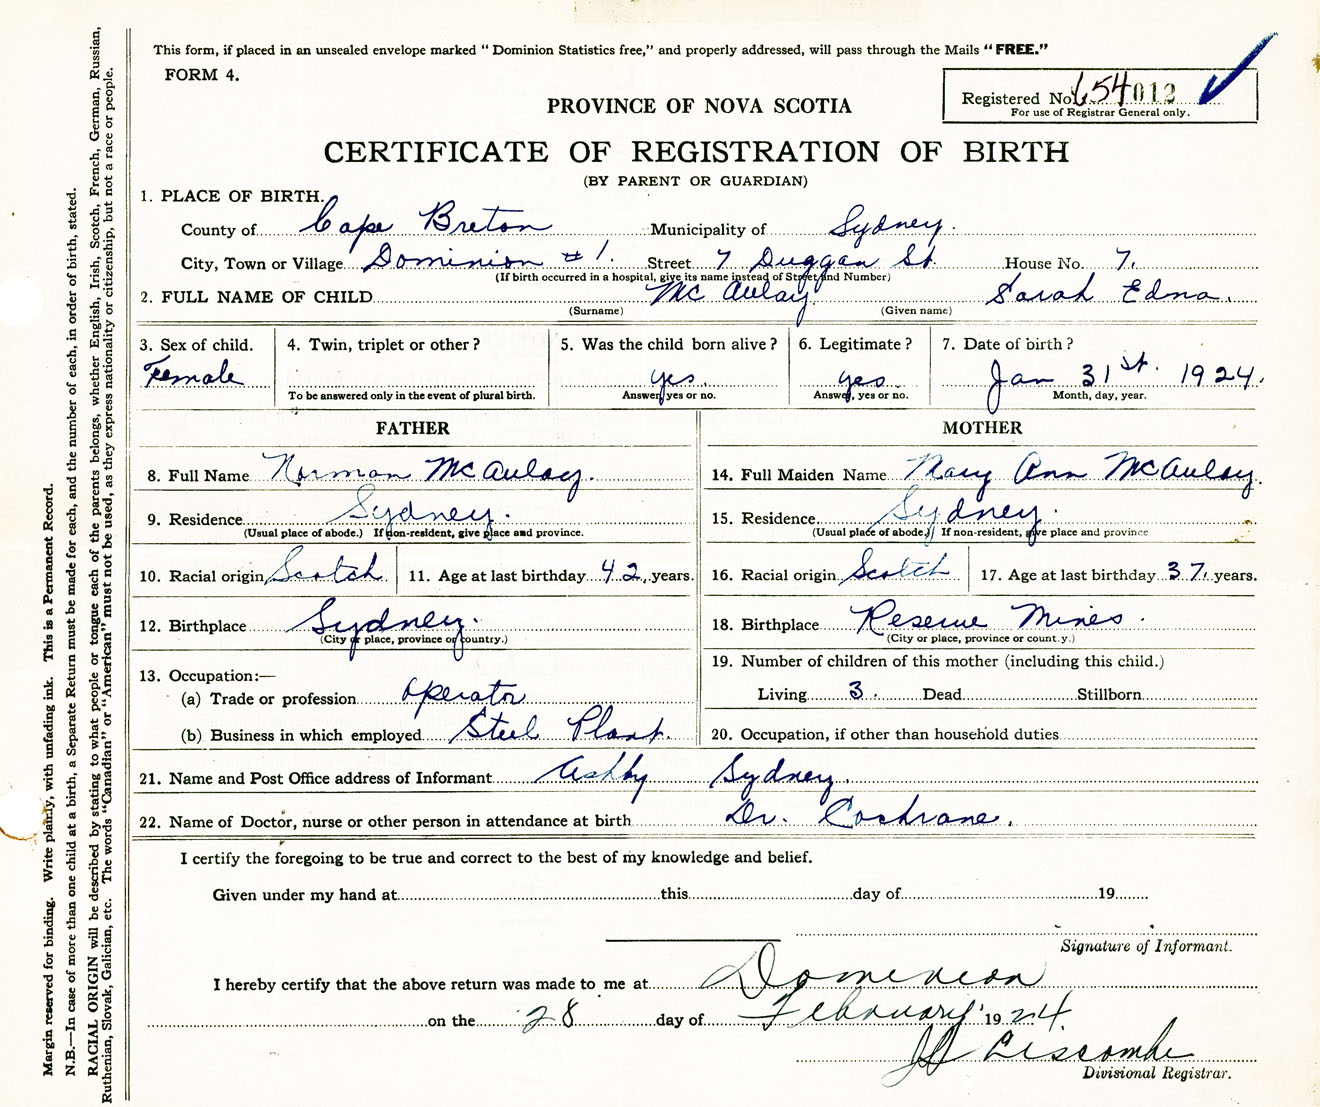 This form, if placed in an unsealed envelope marked “Dominion Statistics free,” and properly addressed, will pass through the Mails “FREE.”
FORM 4.
Registered No. 654012
For use of Registrar General only.
PROVINCE OF NOVA SCOTIA
CERTIFICATE OF REGISTRATION OF BIRTH
(BY PARENT OR GUARDIAN)
1. PLACE OF BIRTH.
County of Cape Breton Municipality of Sydney.
City, Town or Village Dominion #1. Street 7 Duggan St. House No. 7.
(If birth occurred in a hospital, give its name instead of Street and Number)
2. FULL NAME OF CHILD McAulay. Sarah Edna.
(Surname) (Given name)
3. Sex of child. 4. Twin, triplet or other? 5. Was the child born alive? 6. Legitimate? 7. Date of birth?
Female yes. yes Jan 31st. 1924.
To be answered only in the event of plural birth. Answer, yes or no. Answer, yes or no. Month, day, year.
FATHER MOTHER
8. Full Name Norman McAulay. 14. Full Maiden Name Mary Ann McAulay.
9. Residence Sydney. 15. Residence. Sydney.
(Usual place of abode.) If non-resident, give place and province. (Usual place of abode.) If non-resident, give place and province
10. Racial origin Scotch 11. Age at last birthday 42 years. 16. Racial origin Scotch 17. Age at last birthday 37. years.
12. Birthplace Sydney. 18. Birthplace Reserve Mines.
(City or place, province or country.) (City or place, province or count.y.)
13. Occupation:— 19. Number of children of this mother (including this child.)
(a) Trade or profession operator Living 3. Dead Stillborn
(b) Business in which employed Steel Plant. 20. Occupation, if other than household duties
21. Name and Post Office address of Informant Ashby Sydney.
22. Name of Doctor, nurse or other person in attendance at birth Dr. Cochrane.
I certify the foregoing to be true and correct to the best of my knowledge and belief.
Given under my hand at this day of 19
Signature of Informant.
I hereby certify that the above return was made to me at Dominion
on the 28 day of February 1924.
Liscombe
Divisional Registrar.
Margin reserved for binding. Write plainly, with unfading ink. This is a Permanent Record.
N.B.—In case of more than one child at a birth, a Separate Return must be made for each, and the number of each, in order of birth, stated.
RACIAL ORIGIN will be described by stating to what people or tongue each of the parents belongs, whether English, Irish, Scotch, French, German, Russian,
Ruthenian, Slovak, Galician, etc. The words “Canadian” or “American” must not be used, as they express nationality or citizenship, but not a race or people.